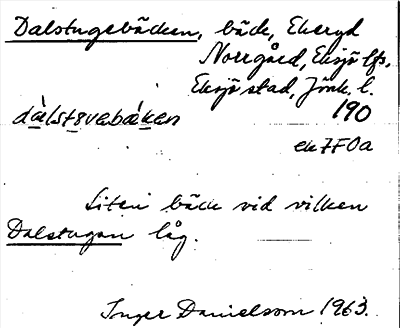 Dalstugebäcken, bäck, Ekeryd
Norrgård, Eksjö lfs,
Eksjö stad, Jönk. l.
190
dàlstʉvebæken
ek 7F0a
Liten bäck vid vilken
Dalstugan låg.
Inger Danielsson 1963.